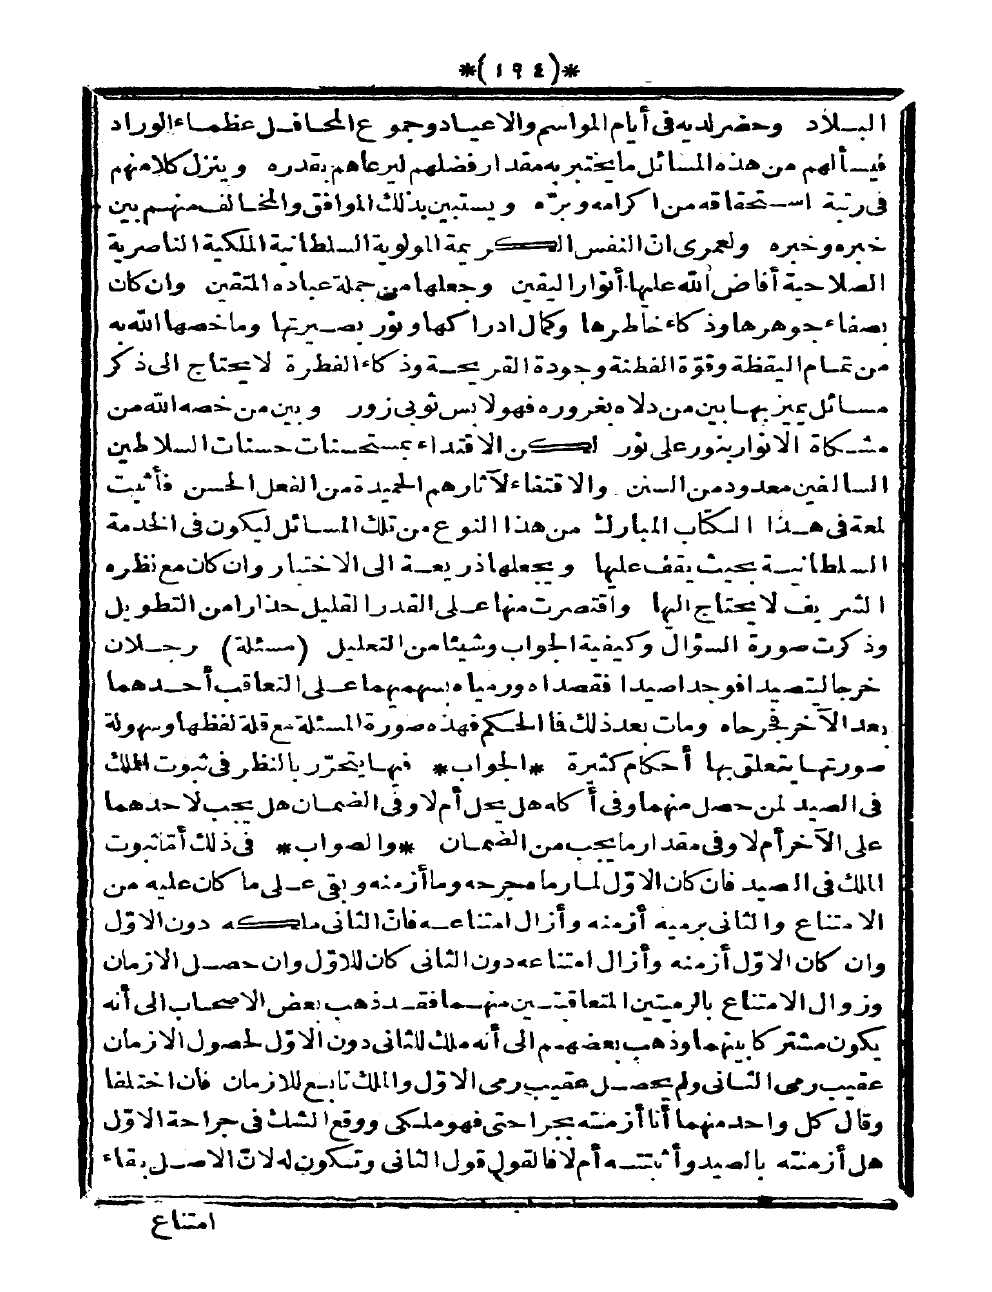 *(١٩٤)*
البلاد وحضر لديه فى أيام المواسم والاعياد وجموع المحافل عظماء الوراد
فيسألهم من هذه المسائل ما يختبر به مقدار فضلهم ليرعاهم بقدره وينزل كلا منهم
فى رتبة استحقاقه من اكرامه وبرّه ويستبين بذلك الموافق والمخالف منهم بين
خيره وخبره ولعمرى انّ النفس الكريمة المولوية السلطانية الملكية الناصرية
الصلاحية أفاض الله عليها أنوار اليقين وجعلها من جملة عباده المتقين وان كان
بصفاء جوهرها وذكاء خاطرها وكمال ادراكها ونور بصيرتها وما خصها الله به
من تمام اليقظة وقوّة الفطنة وجودة القريحة وذكاء الفطرة لا يحتاج الى ذكر
مسائل يميز بها بين من دلاه بغروره فهو لابس ثوبى زور وبين من خصه الله من
مشكاة الانوار بنور على نور لكن الاقتداء بمستحسنات حسنات السلاطين
السالفين معدود من السنن والاقتفاء لآثارهم الحميدة من الفعل الحسن فأثبت
لمعة فى هذا الكتاب المبارك من هذا النوع من تلك المسائل ليكون فى الخدمة
السلطانية بحيث يقف عليها ويجعلها ذريعة الى الاختبار وان كان مع نظره
الشريف لا يحتاج اليها واقتصرت منها على القدر القليل حذارا من التطويل
وذكرت صورة السؤال وكيفية الجواب وشيئا من التعليل (مسئلة) رجلان
خرجا لتصيد افوجدا صيدا فقصداه ورمياه بسهميهما على التعاقب أحدهما
بعد الآخر فجرحاه ومات بعد ذلك فما الحكم فهذه صورة المسئلة مع قلة لفظها وسهولة
صورتها يتعلق بها أحكام كثيرة *الجواب* فيها يتحرّر بالنظر فى ثبوت الملك
فى الصيد لمن حصل منهما وفى أكله هل يحل أم لا وفى الضمان هل يجب لاحدهما
على الآخر أم لا وفى مقدار ما يجب من الضمان *والصواب* فى ذلك أمّا ثبوت
الملك فى الصيد فان كان الاوّل لما رماه جرحه وما أزمنه وبقى على ما كان عليه من
الامتناع والثانى برميه أزمنه وأزال امتناعه فانّ الثانى ملكه دون الاوّل
وان كان الاوّل أزمنه وأزال امتناعه دون الثانى كان للاوّل وان حصل الازمان
وزوال الامتناع بالرميتين المتعاقبتين منهما فقد ذهب بعض الاصحاب الى أنه
يكون مشتركا بينهما وذهب بعضهم الى أنه ملك للثانى دون الاوّل لحصول الازمان
عقيب رمى الثانى ولم يحصل عقيب رمى الاوّل والملك تابع للازمان فان اختلفا
وقال كل واحد منهما أنا أزمنته بجراحتى فهو ملكى ووقع الشك فى جراحة الاوّل
هل أزمنته بالصيد وأثبتته أم لا فالقول قول الثانى وتكون له لانّ الاصل بقاء
امتناع